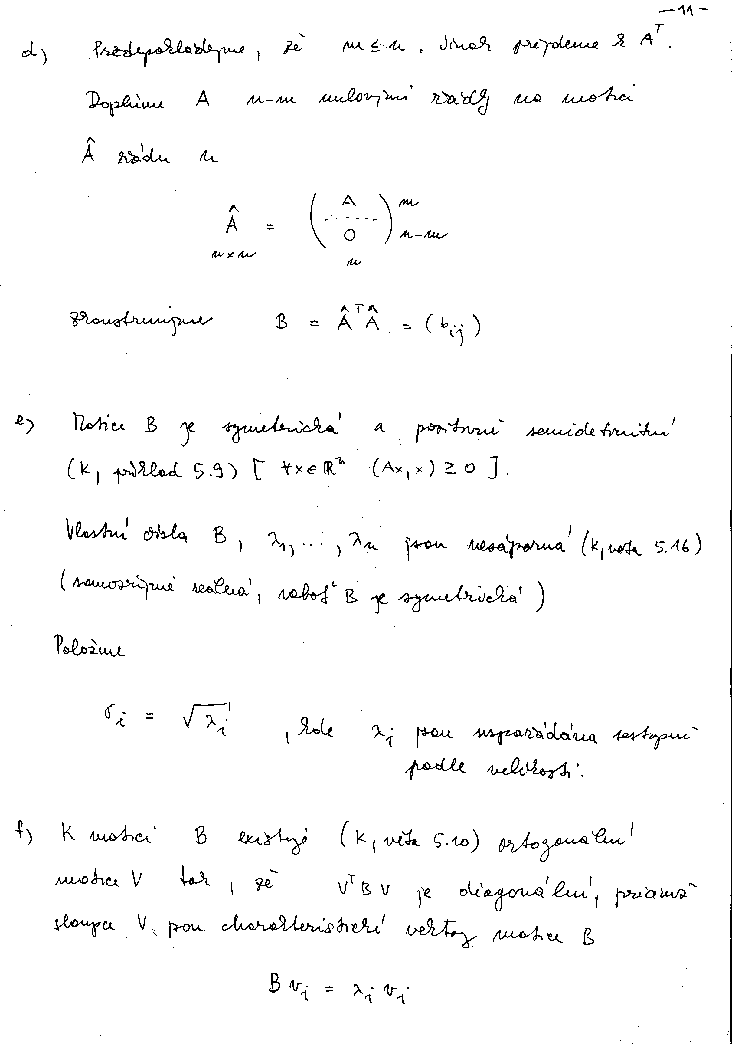 - 11 -
d) Předpokládejme, že m ≤ n, jinak přejdeme k Aᵀ.
Doplníme A n-m nulovými řádky na matici
Â řádu n
Â = ( A / 0 ) m n-m
n×n n
Zkonstruujme B = ÂᵀÂ = (b_ij)
e) Matice B je symetrická a pozitivně semidefinitní
(K, příklad 5.9) [ ∀x∈ℝⁿ (Ax, x) ≥ 0 ].
Vlastní čísla B, λ₁, ..., λₙ jsou nezáporná (K, věta 5.16)
(samozřejmě reálná, neboť B je symetrická)
Položme
σᵢ = √λᵢ , kde λᵢ jsou uspořádána sestupně
podle velikosti.
f) K matici B existuje (K, věta 5.10) ortogonální
matice V tak, že VᵀBV je diagonální, přičemž
sloupce V jsou charakteristické vektory matice B
B vᵢ = λᵢ vᵢ